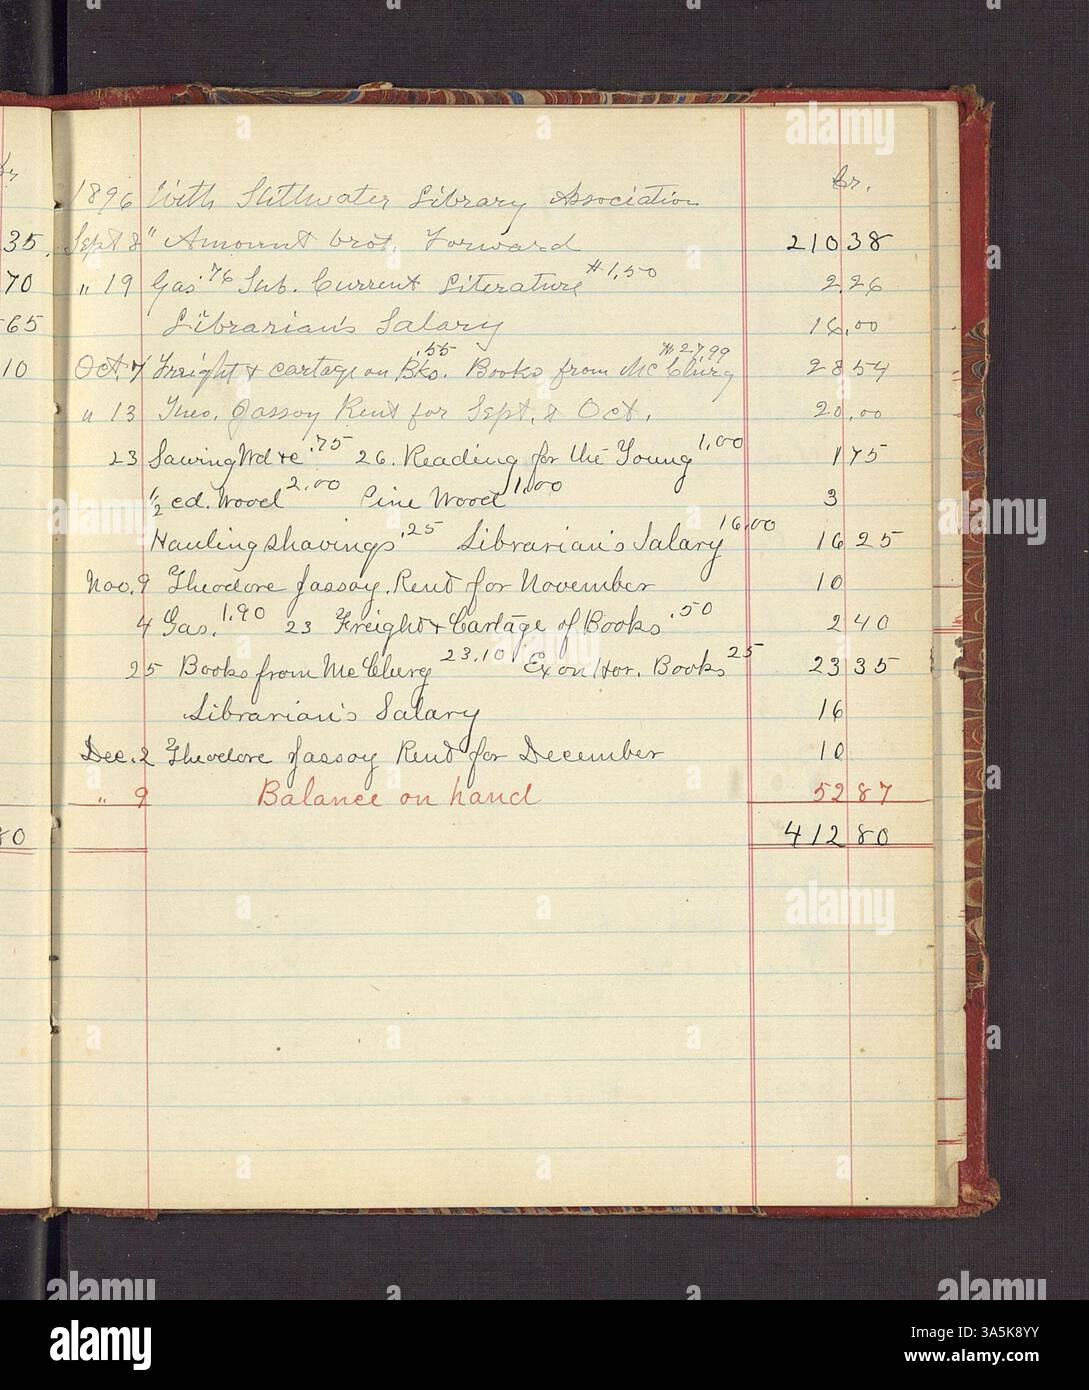 Dr
Cr.
1896 With Stillwater Library Association
35. Sept 8 " Amount brot. Forward 210 38
70 " 19 Gas .76 Sub. Current Literature #1,50 2.26
65 Librarian's Salary 16.00
10 Oct. 7 Freight & cartage on Bks. .55 Books from McClurg #27,99 28 54
" 13 Theo. Jassoy Rent for Sept. & Oct. 20.00
23 Sawing Wd &c .75 26. Reading for the Young 1,00 1 75
1/2 cd. Wood 2.00 Pine Wood 1.00 3
Hauling shavings .25 Librarian's Salary 16.00 16 25
Nov. 9 Theodore Jassoy. Rent for November 10
4 Gas. 1.90 23 Freight & Cartage of Books .50 2 40
25 Books from McClurg 23.10 Ex on Hor. Books 25 23 35
Librarian's Salary 16
Dec. 2 Theodore Jassoy Rent for December 10
" 9 Balance on hand 52 87
80 412 80
alamy
alamy
Image ID: 3A5K8YY
www.alamy.com